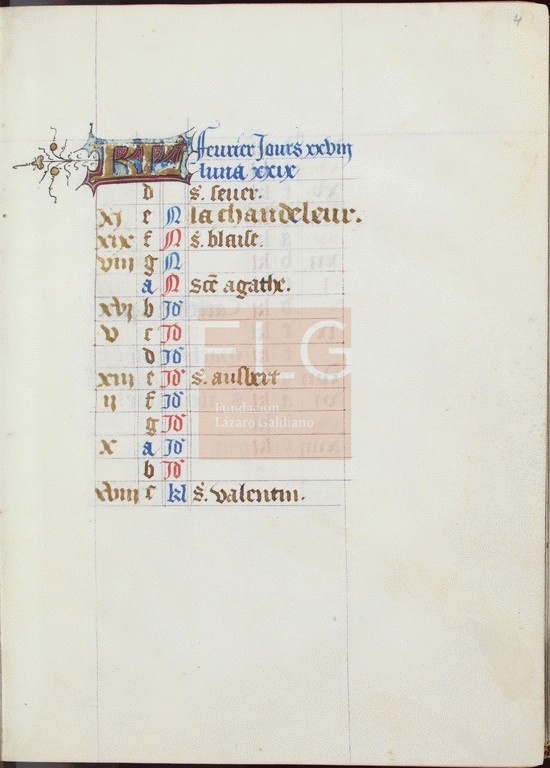 4
KL feurier Jours xxviij
luna xxix
d s. seuer.
xi e N la chandeleur.
xix f N s. blaise.
viij g N
a N sce agathe.
xvi b Id
v c Id
d Id
xiij e Id s. ausbert
ij f Id
g Id
x a Id
b Id
xviij c kl s. valentin.
FLG
Fundación
Lázaro Galdiano